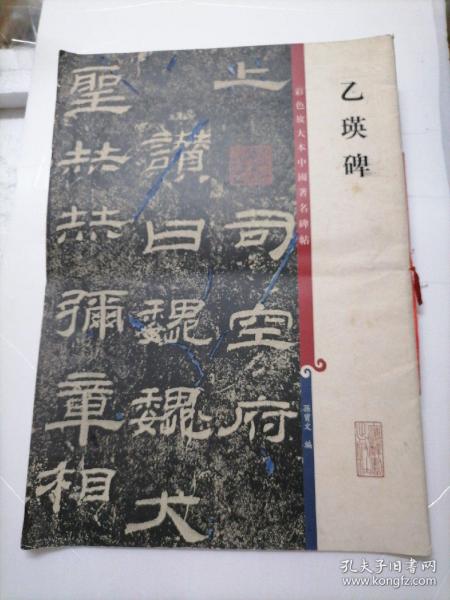 乙瑛碑
彩色放大本中國著名碑帖
孫寶文 編
上司空府
讚曰魏魏大
聖赫赫彌章相
孔夫子旧书网
www.kongfz.com